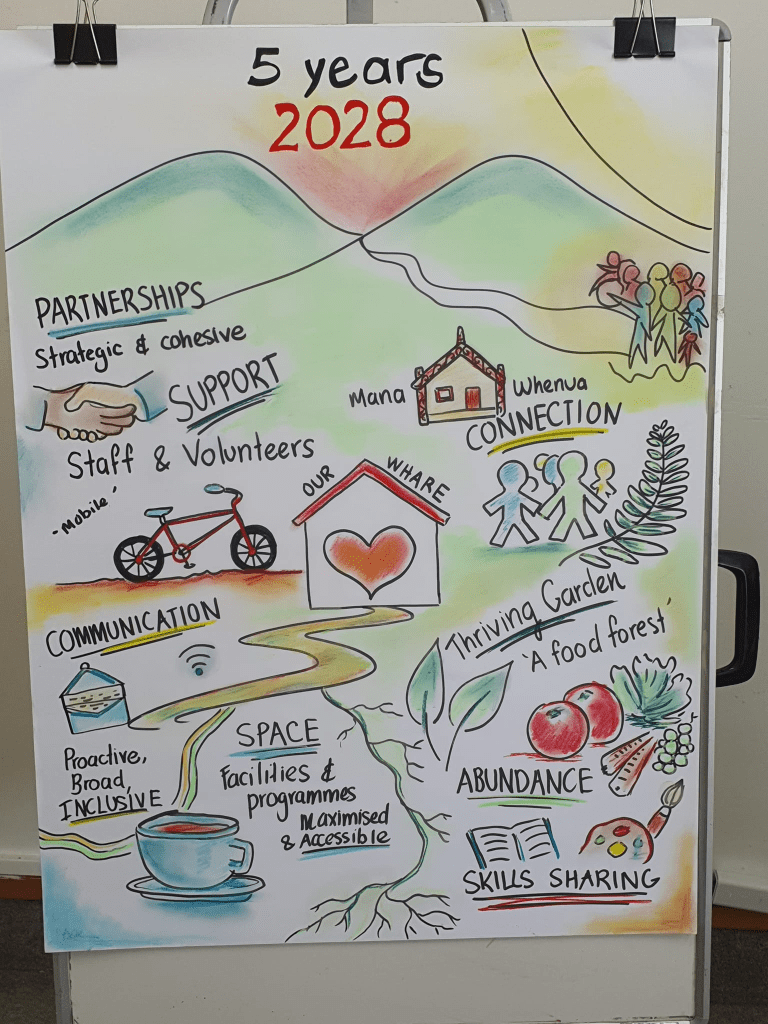 5 years
2028
PARTNERSHIPS
Strategic & cohesive
SUPPORT
Staff & Volunteers
-Mobile'
Mana Whenua
CONNECTION
OUR WHARE
COMMUNICATION
Proactive,
Broad,
INCLUSIVE
SPACE
Facilities &
programmes
Maximised
& Accessible
Thriving Garden
'A food forest'
ABUNDANCE
SKILLS SHARING